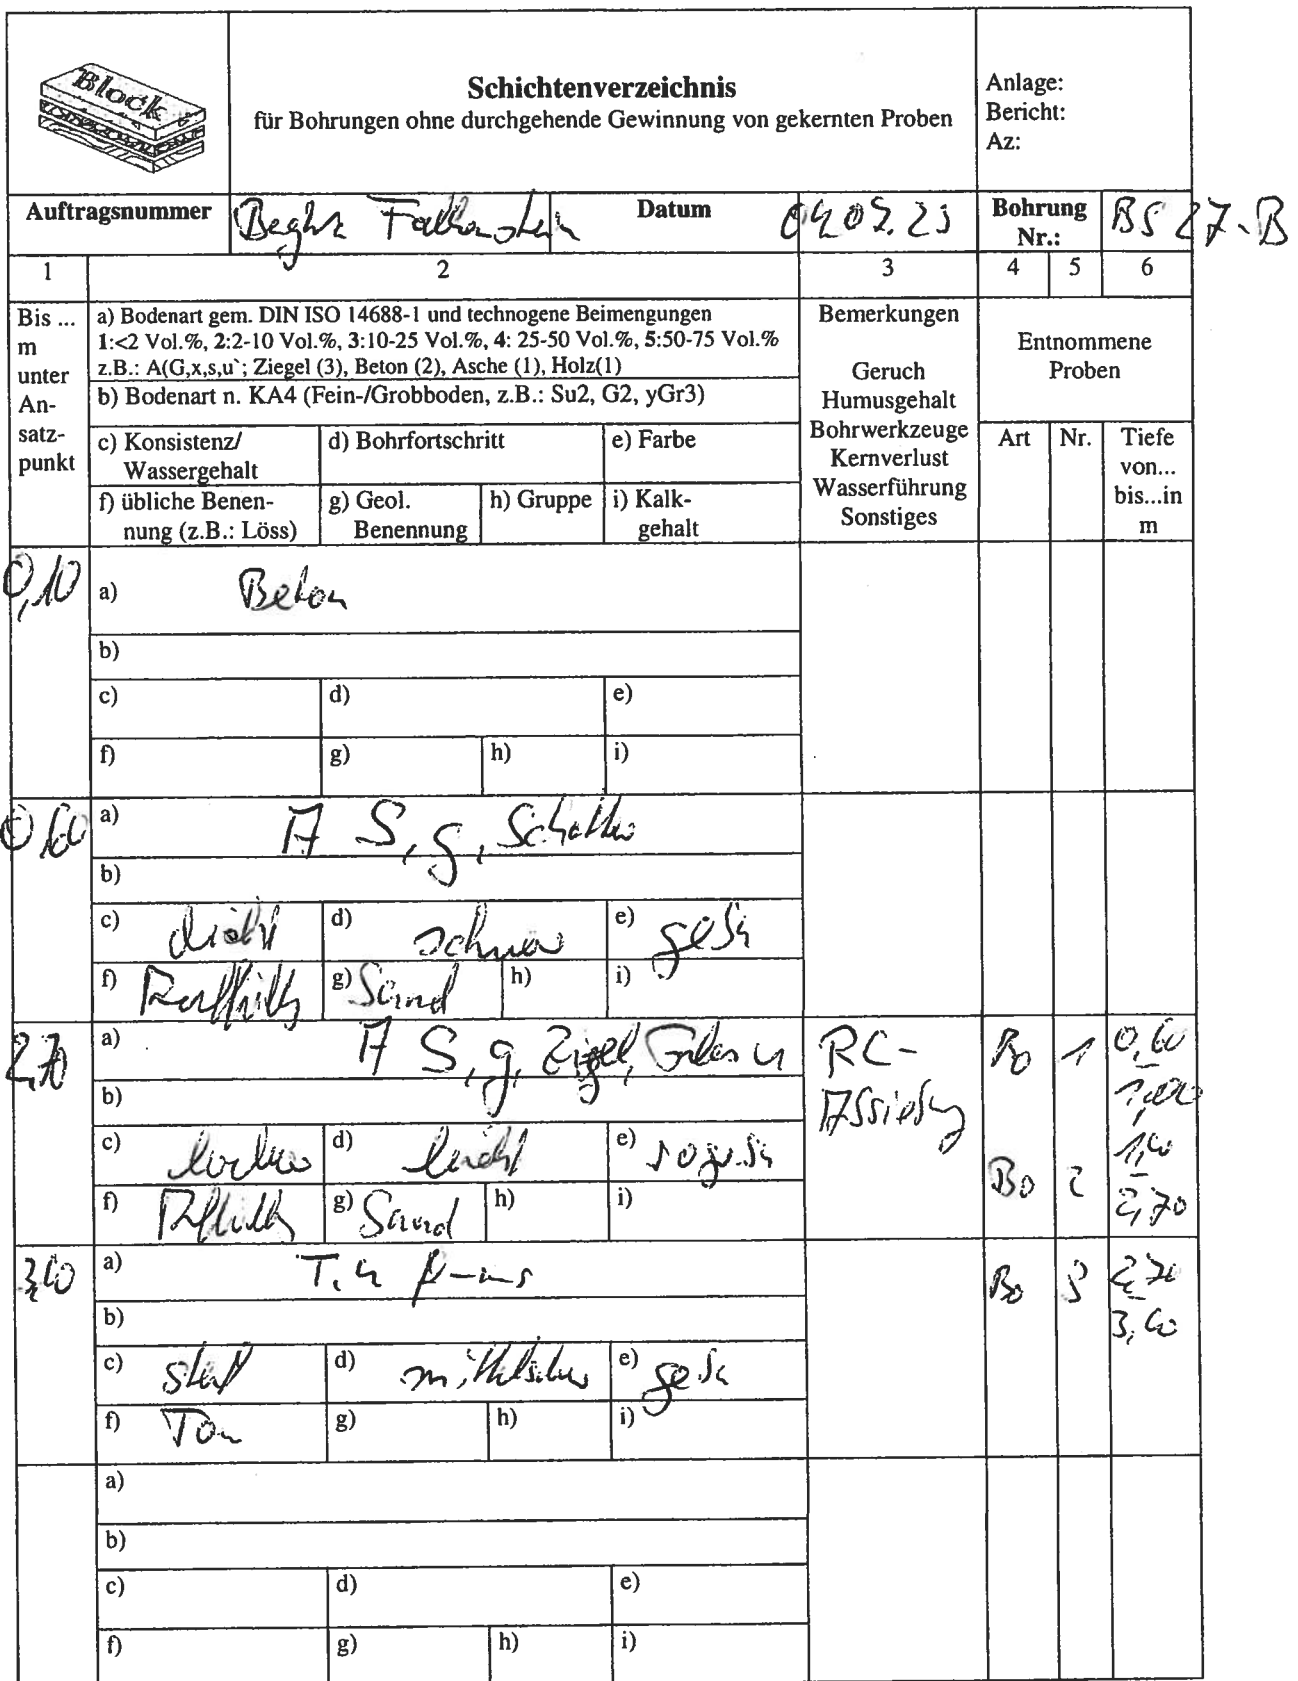 Block
Schichtenverzeichnis
für Bohrungen ohne durchgehende Gewinnung von gekernten Proben
Anlage:
Bericht:
Az:
Auftragsnummer
Datum
Bohrung Nr.:
BS 27-B
1 2 3 4 5 6
Bis ... m unter An- satz- punkt
a) Bodenart gem. DIN ISO 14688-1 und technogene Beimengungen
1:<2 Vol.%, 2:2-10 Vol.%, 3:10-25 Vol.%, 4: 25-50 Vol.%, 5:50-75 Vol.%
z.B.: A(G,x,s,u`; Ziegel (3), Beton (2), Asche (1), Holz(1)
b) Bodenart n. KA4 (Fein-/Grobboden, z.B.: Su2, G2, yGr3)
c) Konsistenz/ Wassergehalt
d) Bohrfortschritt
e) Farbe
f) übliche Benen- nung (z.B.: Löss)
g) Geol. Benennung
h) Gruppe
i) Kalk- gehalt
Bemerkungen
Geruch
Humusgehalt
Bohrwerkzeuge
Kernverlust
Wasserführung
Sonstiges
Entnommene Proben
Art
Nr.
Tiefe von... bis...in m
0,10
a) Beton
b)
c) d) e)
f) g) h) i)
0,60
a) A S, g, Schotter
b)
c) dicht d) schwer e)
f) g) Sand h) i)
2,70
a) A S, g, Ziegel,
b)
c) locker d) leicht e)
f) g) Sand h) i)
RC-
Bo 1 0,60
Bo 2
2,70
a) T, u
b)
c) steif d) mittelschwer e)
f) Ton g) h) i)
Bo 3 2,70
a)
b)
c) d) e)
f) g) h) i)